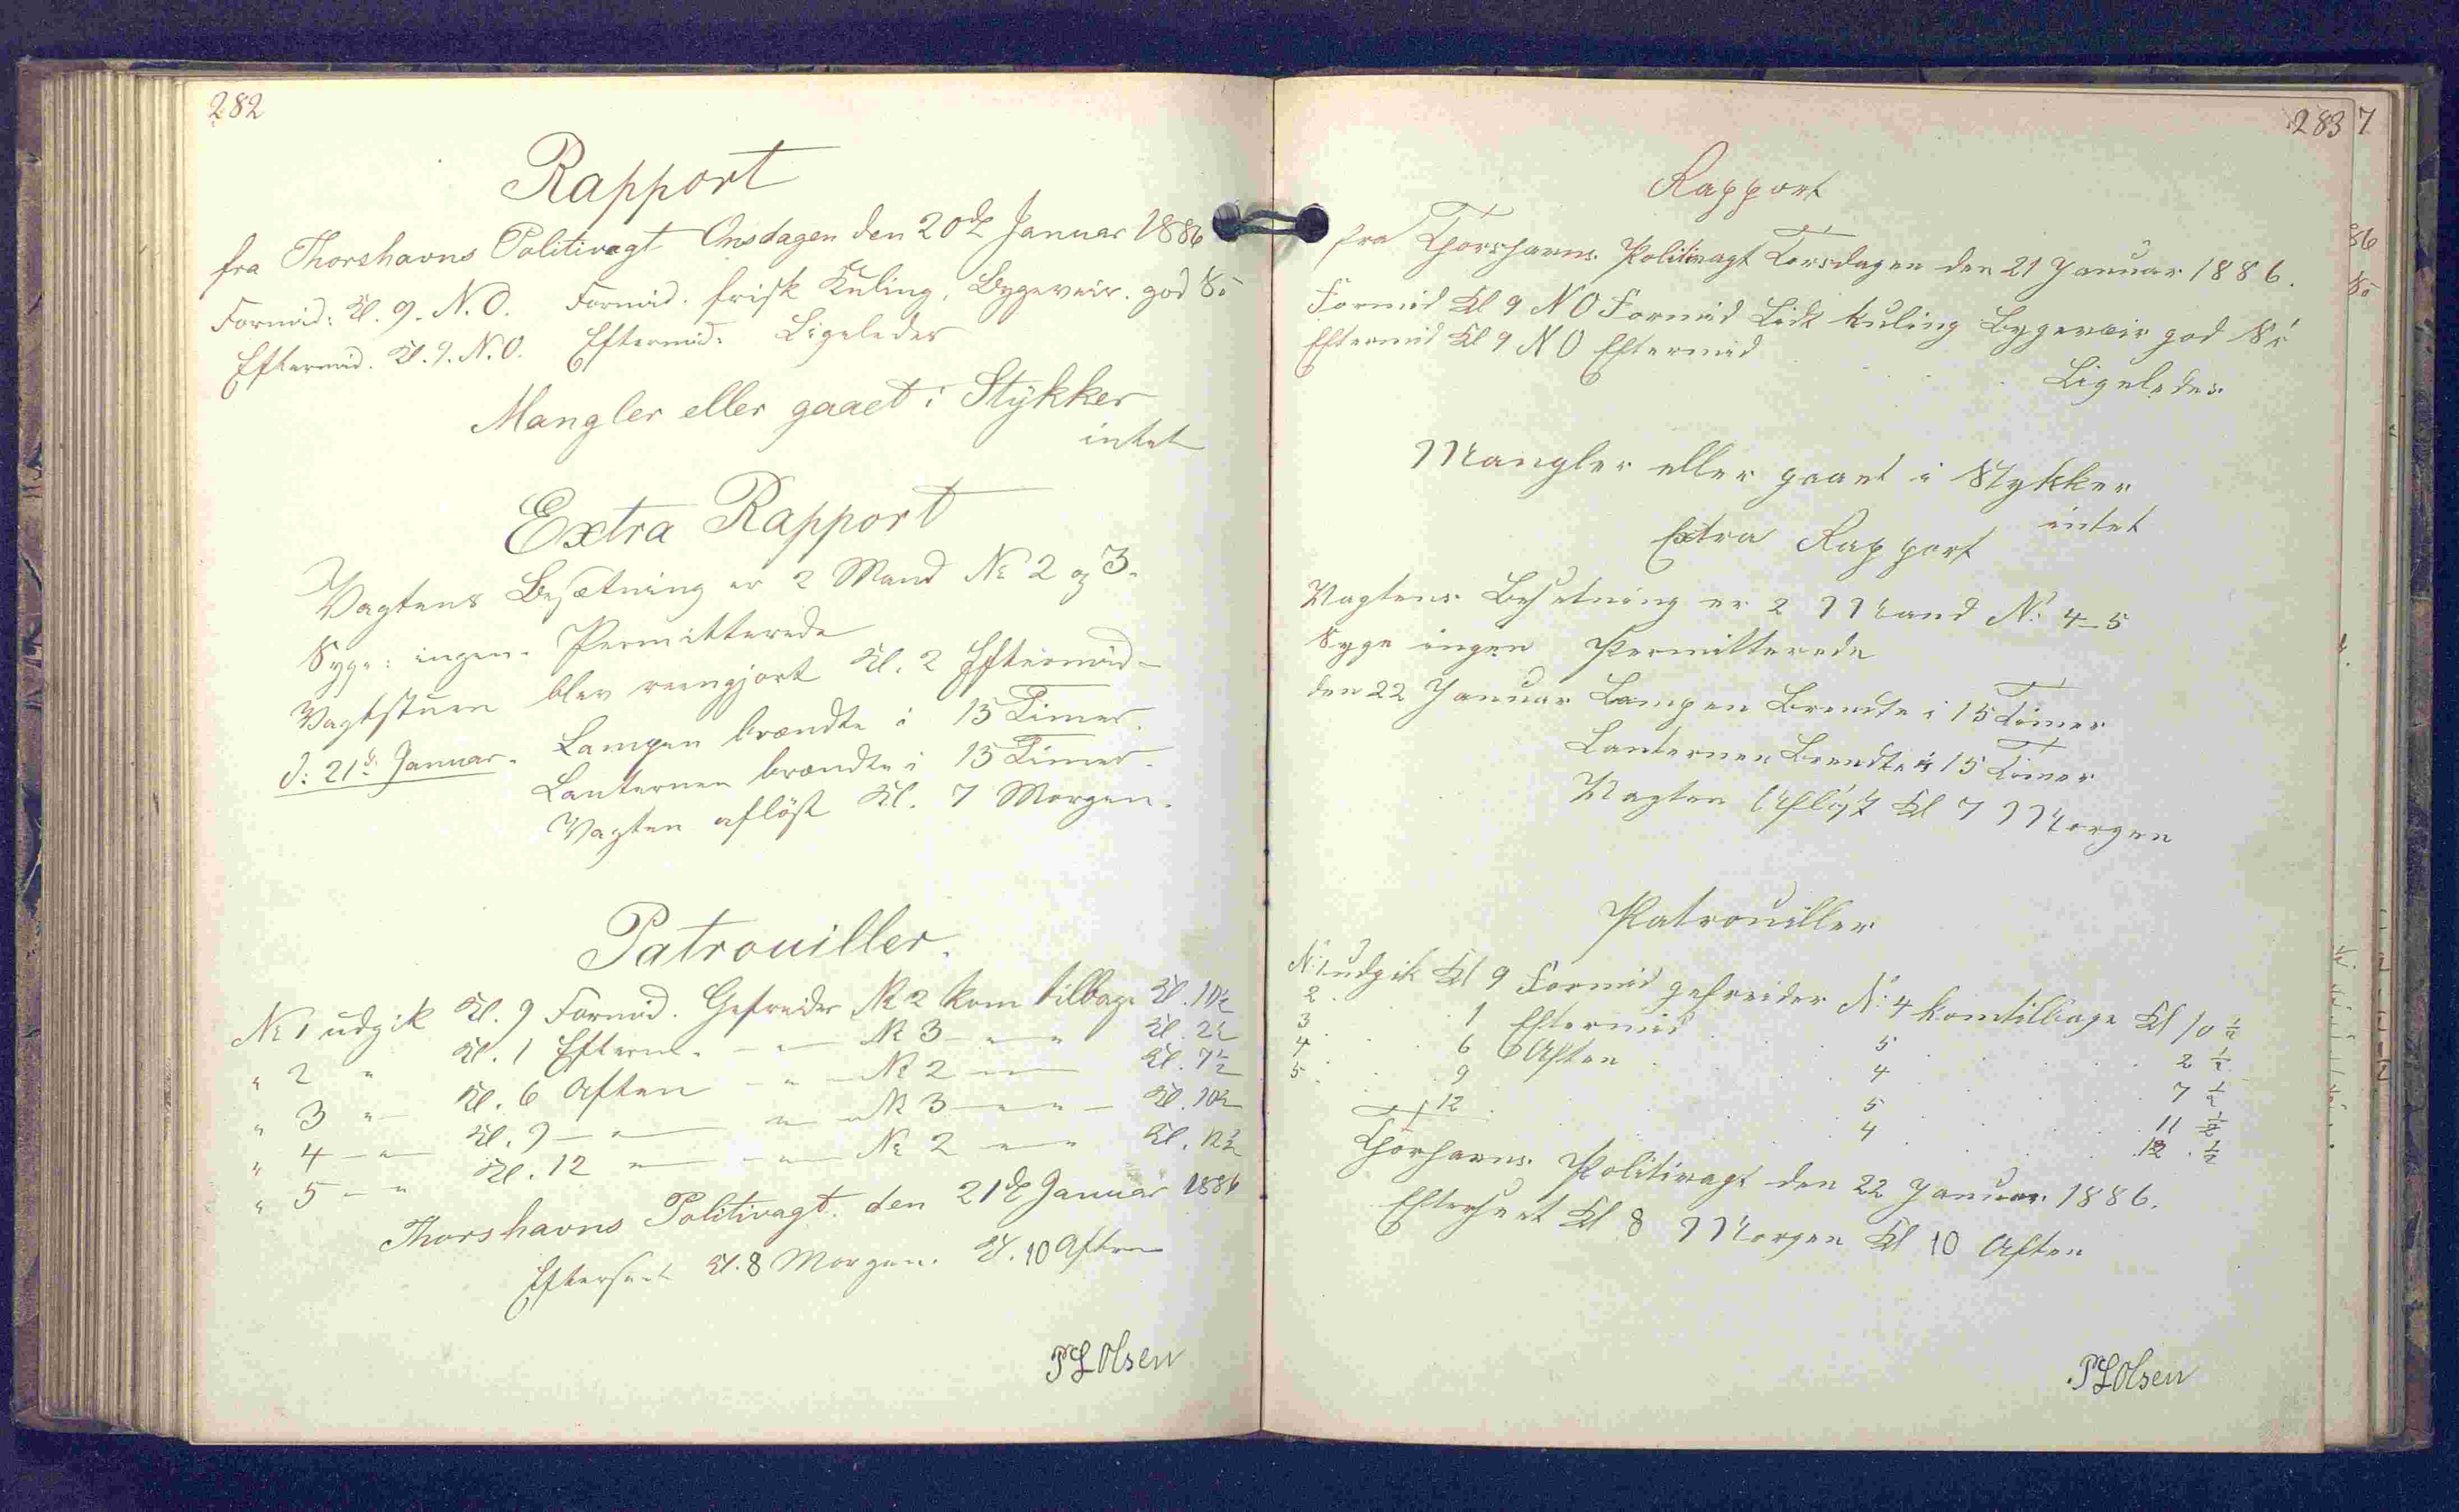 282
Rapport
fra Thorshavns Politivagt Onsdagen den 20de Januar 1886
Formid: Kl. 9. N.O. Formid. frisk Kuling, Bygeveir. god Sö
Eftermid. Kl. 9. N.O. Eftermid. Ligeledes
Mangler eller gaaet i Stykker
intet
Extra Rapport
Vagtens Besætning er 2 Mand No 2 og 3.
Syge: ingen. Permitterede
Vagtstuen blev reengjort Kl. 2 Eftermid-
d: 21d: Januar. Lampen brændte i 15 Timer.
Lanternen brændte i 15 Timer.
Vagten aflöst Kl. 7 Morgen.
Patrouiller.
No 1 udgik Kl. 9 Formid. Gefreider No 2 kom tilbage Kl. 10½
" 2 " Kl. 1 Efterm. - " - No 3 - " - " Kl. 2½
" 3 " - Kl. 6 Aften - " - No 2 - " - Kl. 7½
" 4 - " - Kl. 9 - " - " - No 3 - " - " - Kl. 10½
" 5 - " Kl. 12 " - " - No 2 - " - " Kl. 12½
Thorshavns Politivagt. den 21de Januar 1886
Efterseet Kl. 8 Morgen. Kl. 10 Aften
PL Olsen
283
7
Rapport
fra Thorshavns Politivagt Torsdagen den 21 Januar 1886.
Formid Kl 9 N O Formid Lidt kuling Bygeveir god Sö
Eftermid Kl 9 N O Eftermid
Ligeledes
Mangler eller gaaet i Stykker
intet
Extra Rapport
Vagtens Besetning er 2 Mand No: 4-5
Syge ingen Permitterede
den 22 Januar Lampen Brendte i 15 Timer
Lanternen Brendte i 15 Timer
Vagten Aflöst Kl 7 Morgen
Patrouiller
No: 1 udgik Kl 9 Formid gefreider No: 4 komtilbage Kl 10 ½
2 . . . 1 Eftermid . . 5 . . . 2 ½
3 . . . 6 Aften . . 4 . . . 7 ½
4 . . . 9 . . . 5 . . . 11 ½
5 . . . 12 . . . 4 . . . 12 . ½
Thorhavns Politivagt den 22 Januar 1886.
Efterseet Kl 8 Morgen Kl 10 Aften
PL Olsen
86
Sö